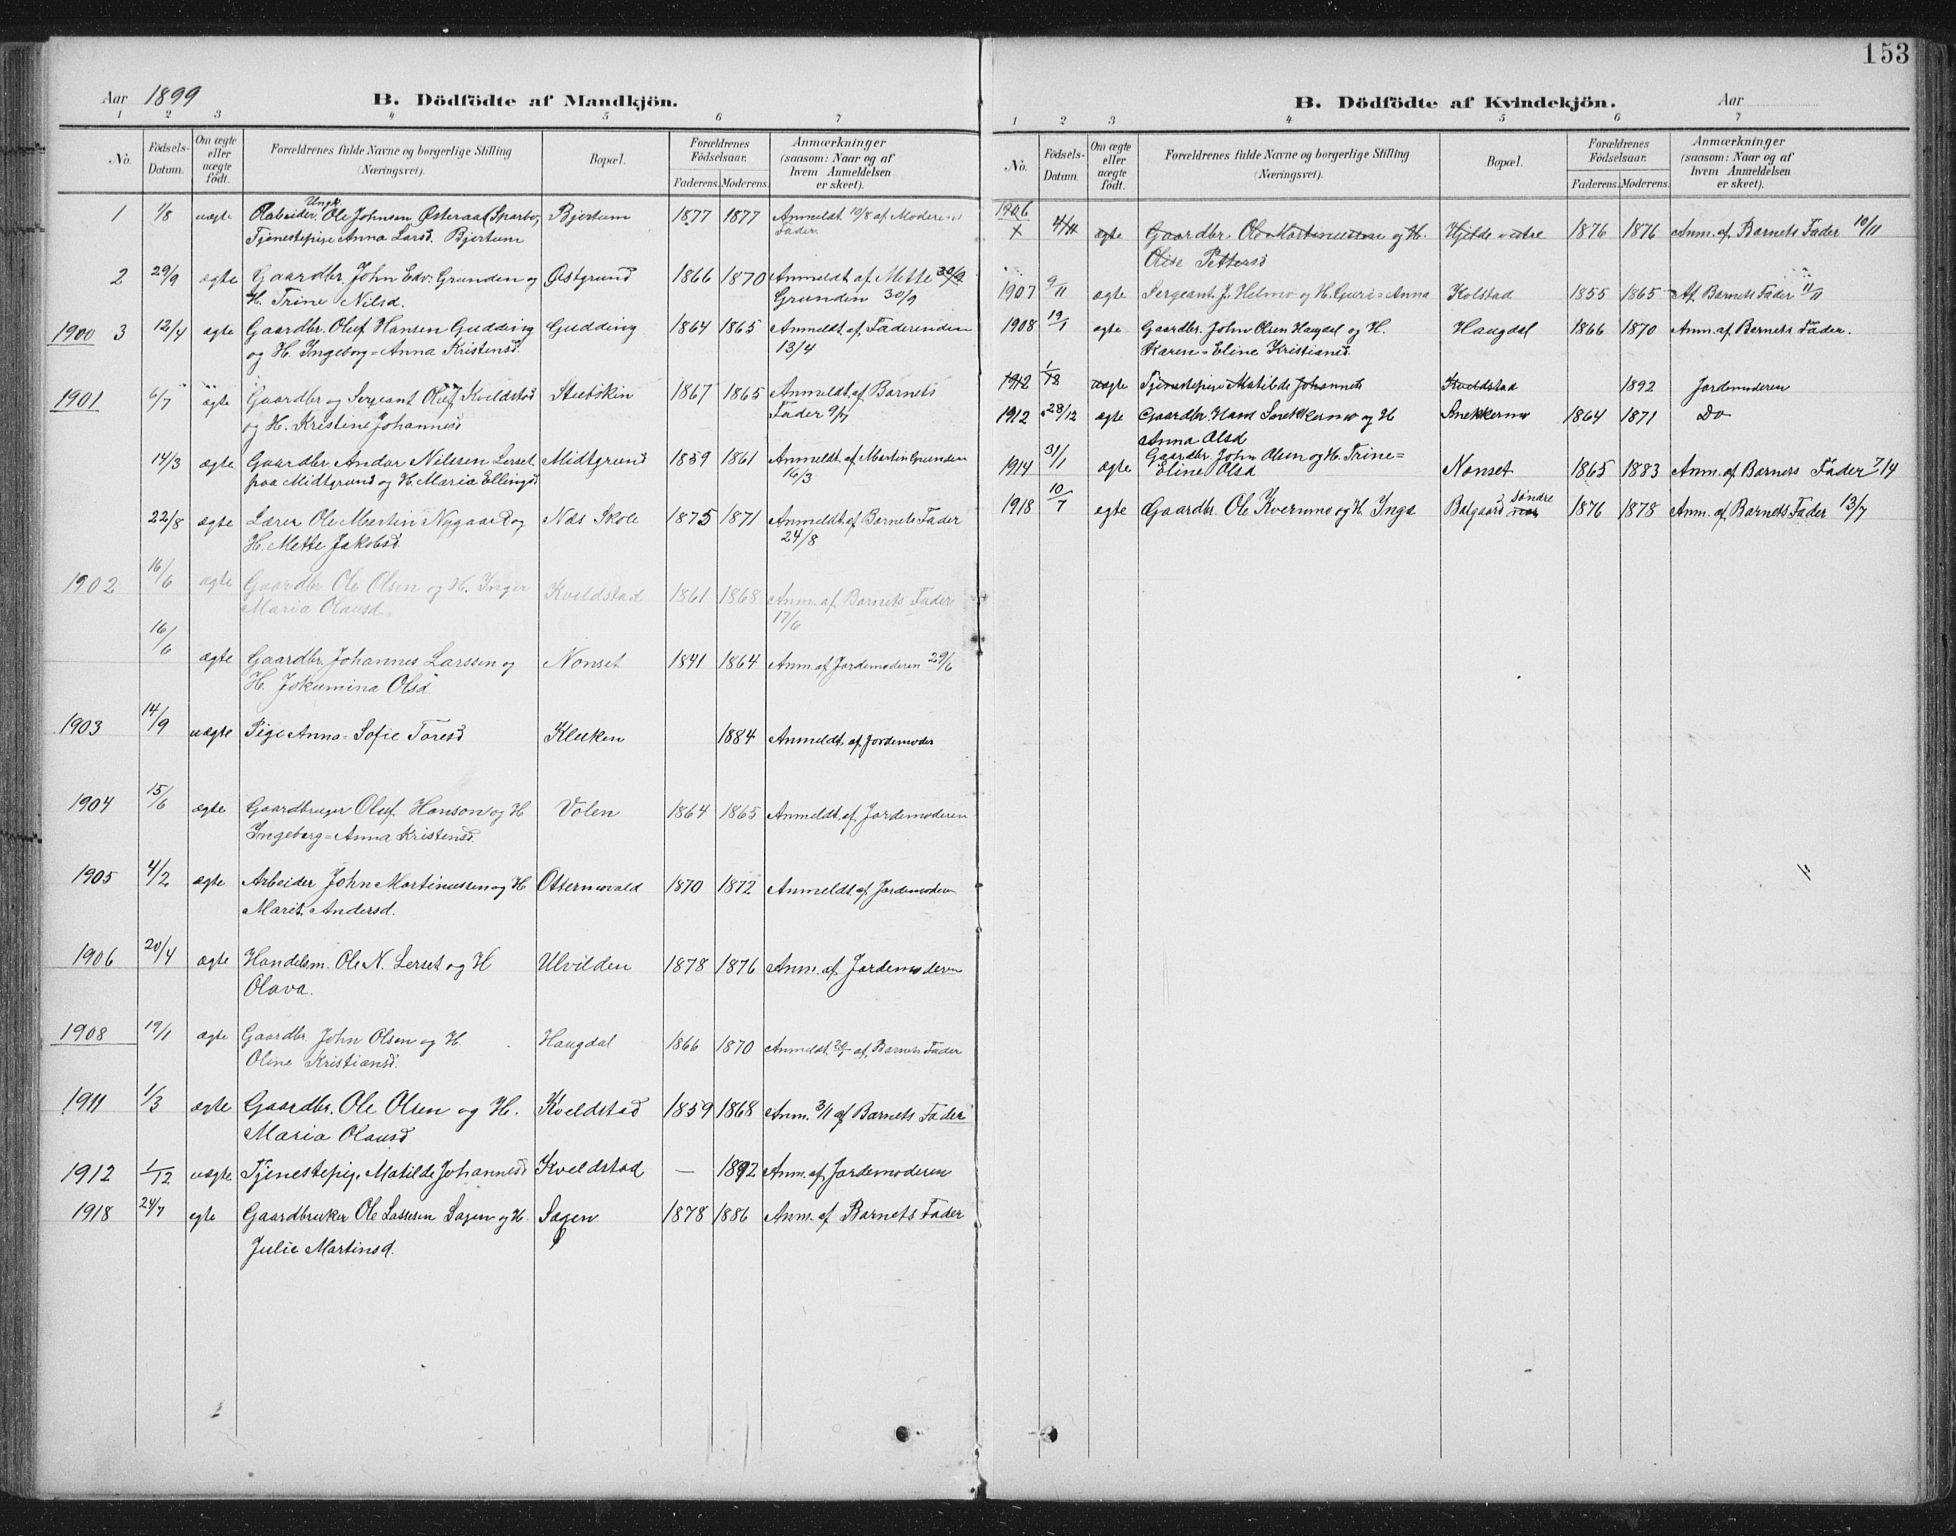 153
Aar 1899 B. Dödfödte af Mandkjön.
1 2 3 4 5 6 7
No. Födsels-Datum. Om ægte eller uægte födt. Forældrenes fulde Navne og borgerlige Stilling (Næringsvei). Bopæl. Forældrenes Födselsaar. Faderens. Moderens. Anmærkninger (saasom: Naar og af hvem Anmeldelsen er skeet).
1 1/8 uægte Ungk. Ole Johnsen Østeraas (Sparbo, Bjertum 1877 1877 Anmeldt 10/8 af Moderens
Tjenestepige Anna Larsd. Bjertum Fader.
2 29/9 ægte Gaardbr. John Edv. Grunden og Østgrund 1866 1870 Anmeldt af Mette 30/9
H. Trine Nilsd. Grunden 30/9
1900 3 12/4 ægte Gaardbr. Oluf Hansen Gudding Gudding 1864 1865 Anmeldt af Faderen den
og H. Ingeborg=Anna Kristensd. 13/4
1901 6/7 ægte Gaardbr og Sergeant Oluf Kveldstad 1867 1865 Anmeldt af Barnets
og H. Kristine Johannesd Fader 9/7
14/3 ægte Gaardbr. Andor Nilssen Lerset Midtgrund 1859 1861 Anmeldt af Martin Grunden
paa Midtgrund og H. Maria Ellingsd 16/3
22/8 ægte Lærer Ole Martin Nygaard og Næs Skole 1875 1871 Anmeldt af Barnets Fader
H. Mette Jakobsd 24/8
1902 16/6 ægte Gaardbr Ole Olsen og H. Inger Kveldstad 1861 1868 Anm. af Barnets Fader
Maria Olausd. 17/6
16/6 ægte Gaardbr. Johannes Larssen og Nonset 1841 1864 Anm. af Jordemoderen 29/6
H. Jokumina Olsd
1903 14/9 uægte Pige Anna=Sofie Toresd Kluken 1884 Anmeldt af Jordemoder
1904 15/6 ægte Gaardbruger Oluf Hanson og H Volen 1864 1865 Anmeldt af Jordemoderen
Ingeborg=Anna Kristensd.
1905 4/2 ægte Arbeider John Martinussen og H Ottermovald 1870 1872 Anmeldt af Jordemoderen
Marit Andersd.
1906 20/4 ægte Handelsm. Ole N. Lerset og H Ulvilden 1878 1876 Anm. af Jordemoderen
Olava.
1908 19/1 ægte Gaardbr. John Olsen og H. Haugdal 1866 1870 Anmeldt 20/ af Barnets Fader
Oline Kristiansd.
1911 1/3 ægte Gaardbr. Ole Olsen og H. Kveldstad 1859 1868 Anm. 3/11 af Barnets Fader
Maria Olausd
1912 1/12 uægte Tjenestepig. Matilde Johannesd Kveldstad — 1892 Anm. af Jordemoderen
1918 24/7 egte Gaardbruker Ole Lassesen Sagen og H. Sagen 1878 1886 Anm. af Barnets Fader
Julie Martinsd.
B. Dödfödte af Kvindekjön. Aar
1 2 3 4 5 6 7
No. Födsels-Datum. Om ægte eller uægte födt. Forældrenes fulde Navne og borgerlige Stilling (Næringsvei). Bopæl. Forældrenes Födselsaar. Faderens. Moderens. Anmærkninger (saasom: Naar og af hvem Anmeldelsen er skeet).
1906
X 4/11 ægte Gaardbr. Ole Martinussen og H. Hjelde østre 1876 1876 Anm. af Barnets Fader 10/11
Olise Pettersd
1907 9/11 ægte Sergeant J. Helmo og H. Guri=Anna Kolstad 1855 1865 Af Barnets Fader 11/11
1908 19/1 ægte Gaardbr. John Olsen Haugdal og H. Haugdal 1866 1870 Anm. af Barnets Fader.
Karen=Eline Kristiansd.
1912 1/12 uægte Tjenestepige Matilde Johannesd Kveldstad 1892 Jordemoderen
1912 28/12 ægte Gaardbr. Hans Snekkermo og H Snekkermo 1864 1871 Do
Anna Olsd
1914 31/1 ægte Gaardbr. John Olsen og H. Trine= Nonset 1865 1883 Anm. af Barnets Fader 7/4
Eline Olsd
1918 10/7 egte Gaardbr. Ole Kvernmo og H. Inga Balgaard søndre 1876 1878 Anm. af Barnets Fader 13/7